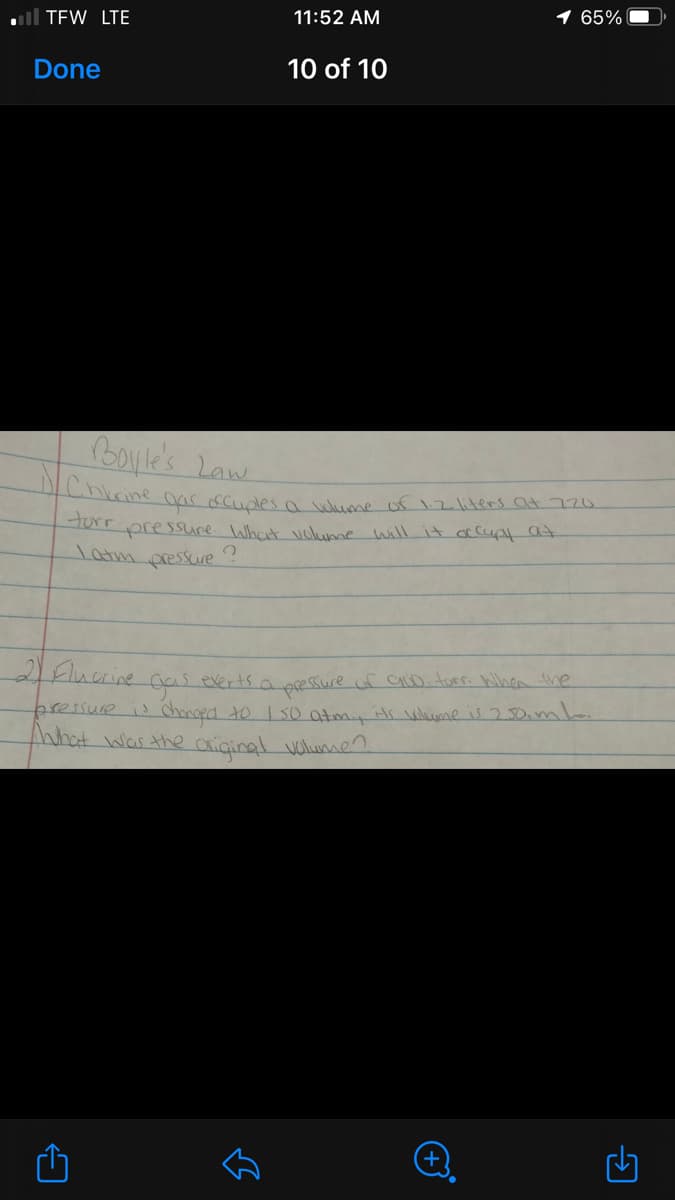 TFW LTE 11:52 AM 65%
Done 10 of 10
Boyle's Law
1) Chlorine gas occupies a volume of 1.2 liters at 720
torr pressure. What volume will it occupy at
1 atm pressure?
2) Fluorine gas exerts a pressure of 900. torr. When the
pressure is changed to 1.50 atm, its volume is 250. mL.
What was the original volume?